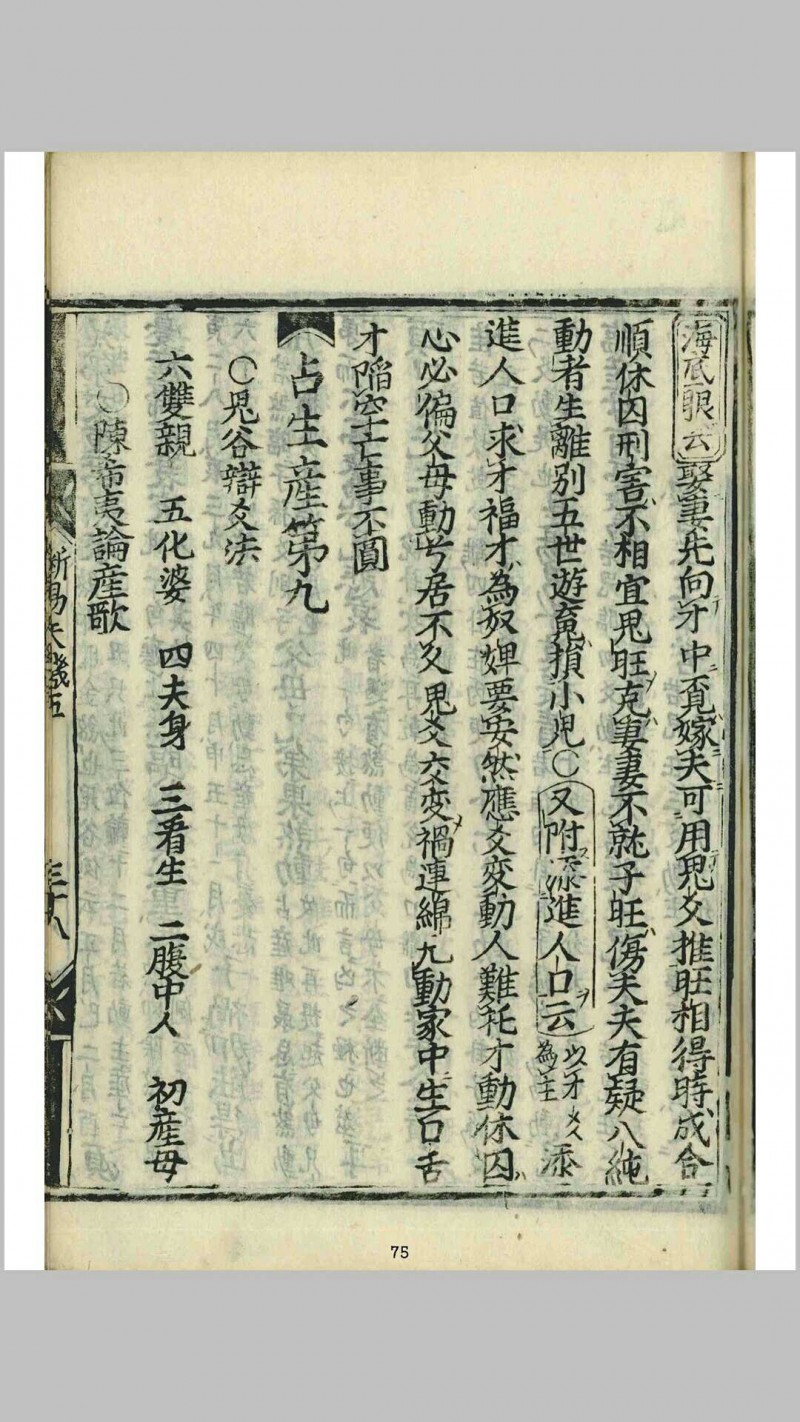 海底眼云娶妻先向才中覔嫁夫可用鬼爻推旺相得時成合
順休囚刑害不相宜鬼旺克妻妻不就子旺傷夫夫有疑八純
動者生離別五世遊䰟損小児〇又附添進人口云以才爻為主添
進人口求才福才為奴婢要安然應爻変動人難秏才動休囚
心必徧父母動兮居不久鬼爻交変禍連綿九動家中生口舌
才陷空亡事不圓
占生産第九
〇鬼谷辯爻法
六雙親 五化婆 四夫身 三看生 二腹中人 初産母
〇陳希夷論産歌
断易天機五
三十八
75